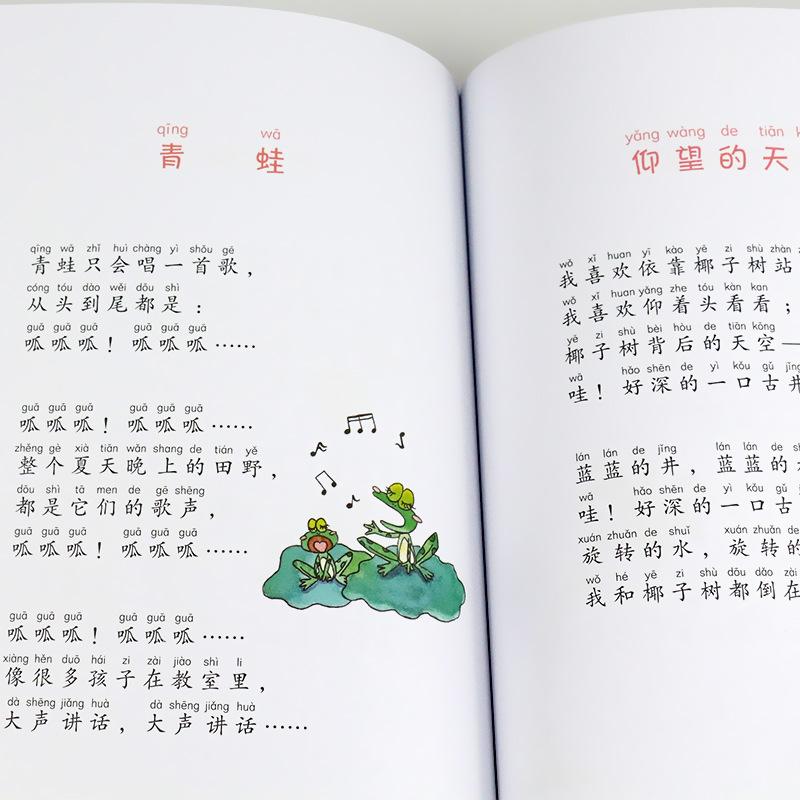 qīng wā
青蛙
qīng wā zhǐ huì chàng yì shǒu gē
青蛙只会唱一首歌，
cóng tóu dào wěi dōu shì
从头到尾都是：
guā guā guā guā guā guā
呱呱呱！呱呱呱……
guā guā guā guā guā guā
呱呱呱！呱呱呱……
zhěng gè xià tiān wǎn shang de tián yě
整个夏天晚上的田野，
dōu shì tā men de gē shēng
都是它们的歌声，
guā guā guā guā guā guā
呱呱呱！呱呱呱……
guā guā guā guā guā guā
呱呱呱！呱呱呱……
xiàng hěn duō hái zi zài jiào shì li
像很多孩子在教室里，
dà shēng jiǎng huà dà shēng jiǎng huà
大声讲话，大声讲话……
yǎng wàng de tiān
仰望的天
wǒ xǐ huan yī kào yē zi shù zhàn
我喜欢依靠椰子树站
wǒ xǐ huan yǎng zhe tóu kàn kan
我喜欢仰着头看看；
yē zi shù bèi hòu de tiān kōng
椰子树背后的天空—
wā hǎo shēn de yì kǒu gǔ jǐng
哇！好深的一口古井
lán lán de jǐng lán lán de
蓝蓝的井，蓝蓝的
wā hǎo shēn de yì kǒu gǔ
哇！好深的一口古
xuán zhuǎn de shuǐ xuán zhuǎn de
旋转的水，旋转的
wǒ hé yē zi shù dōu dào zài
我和椰子树都倒在